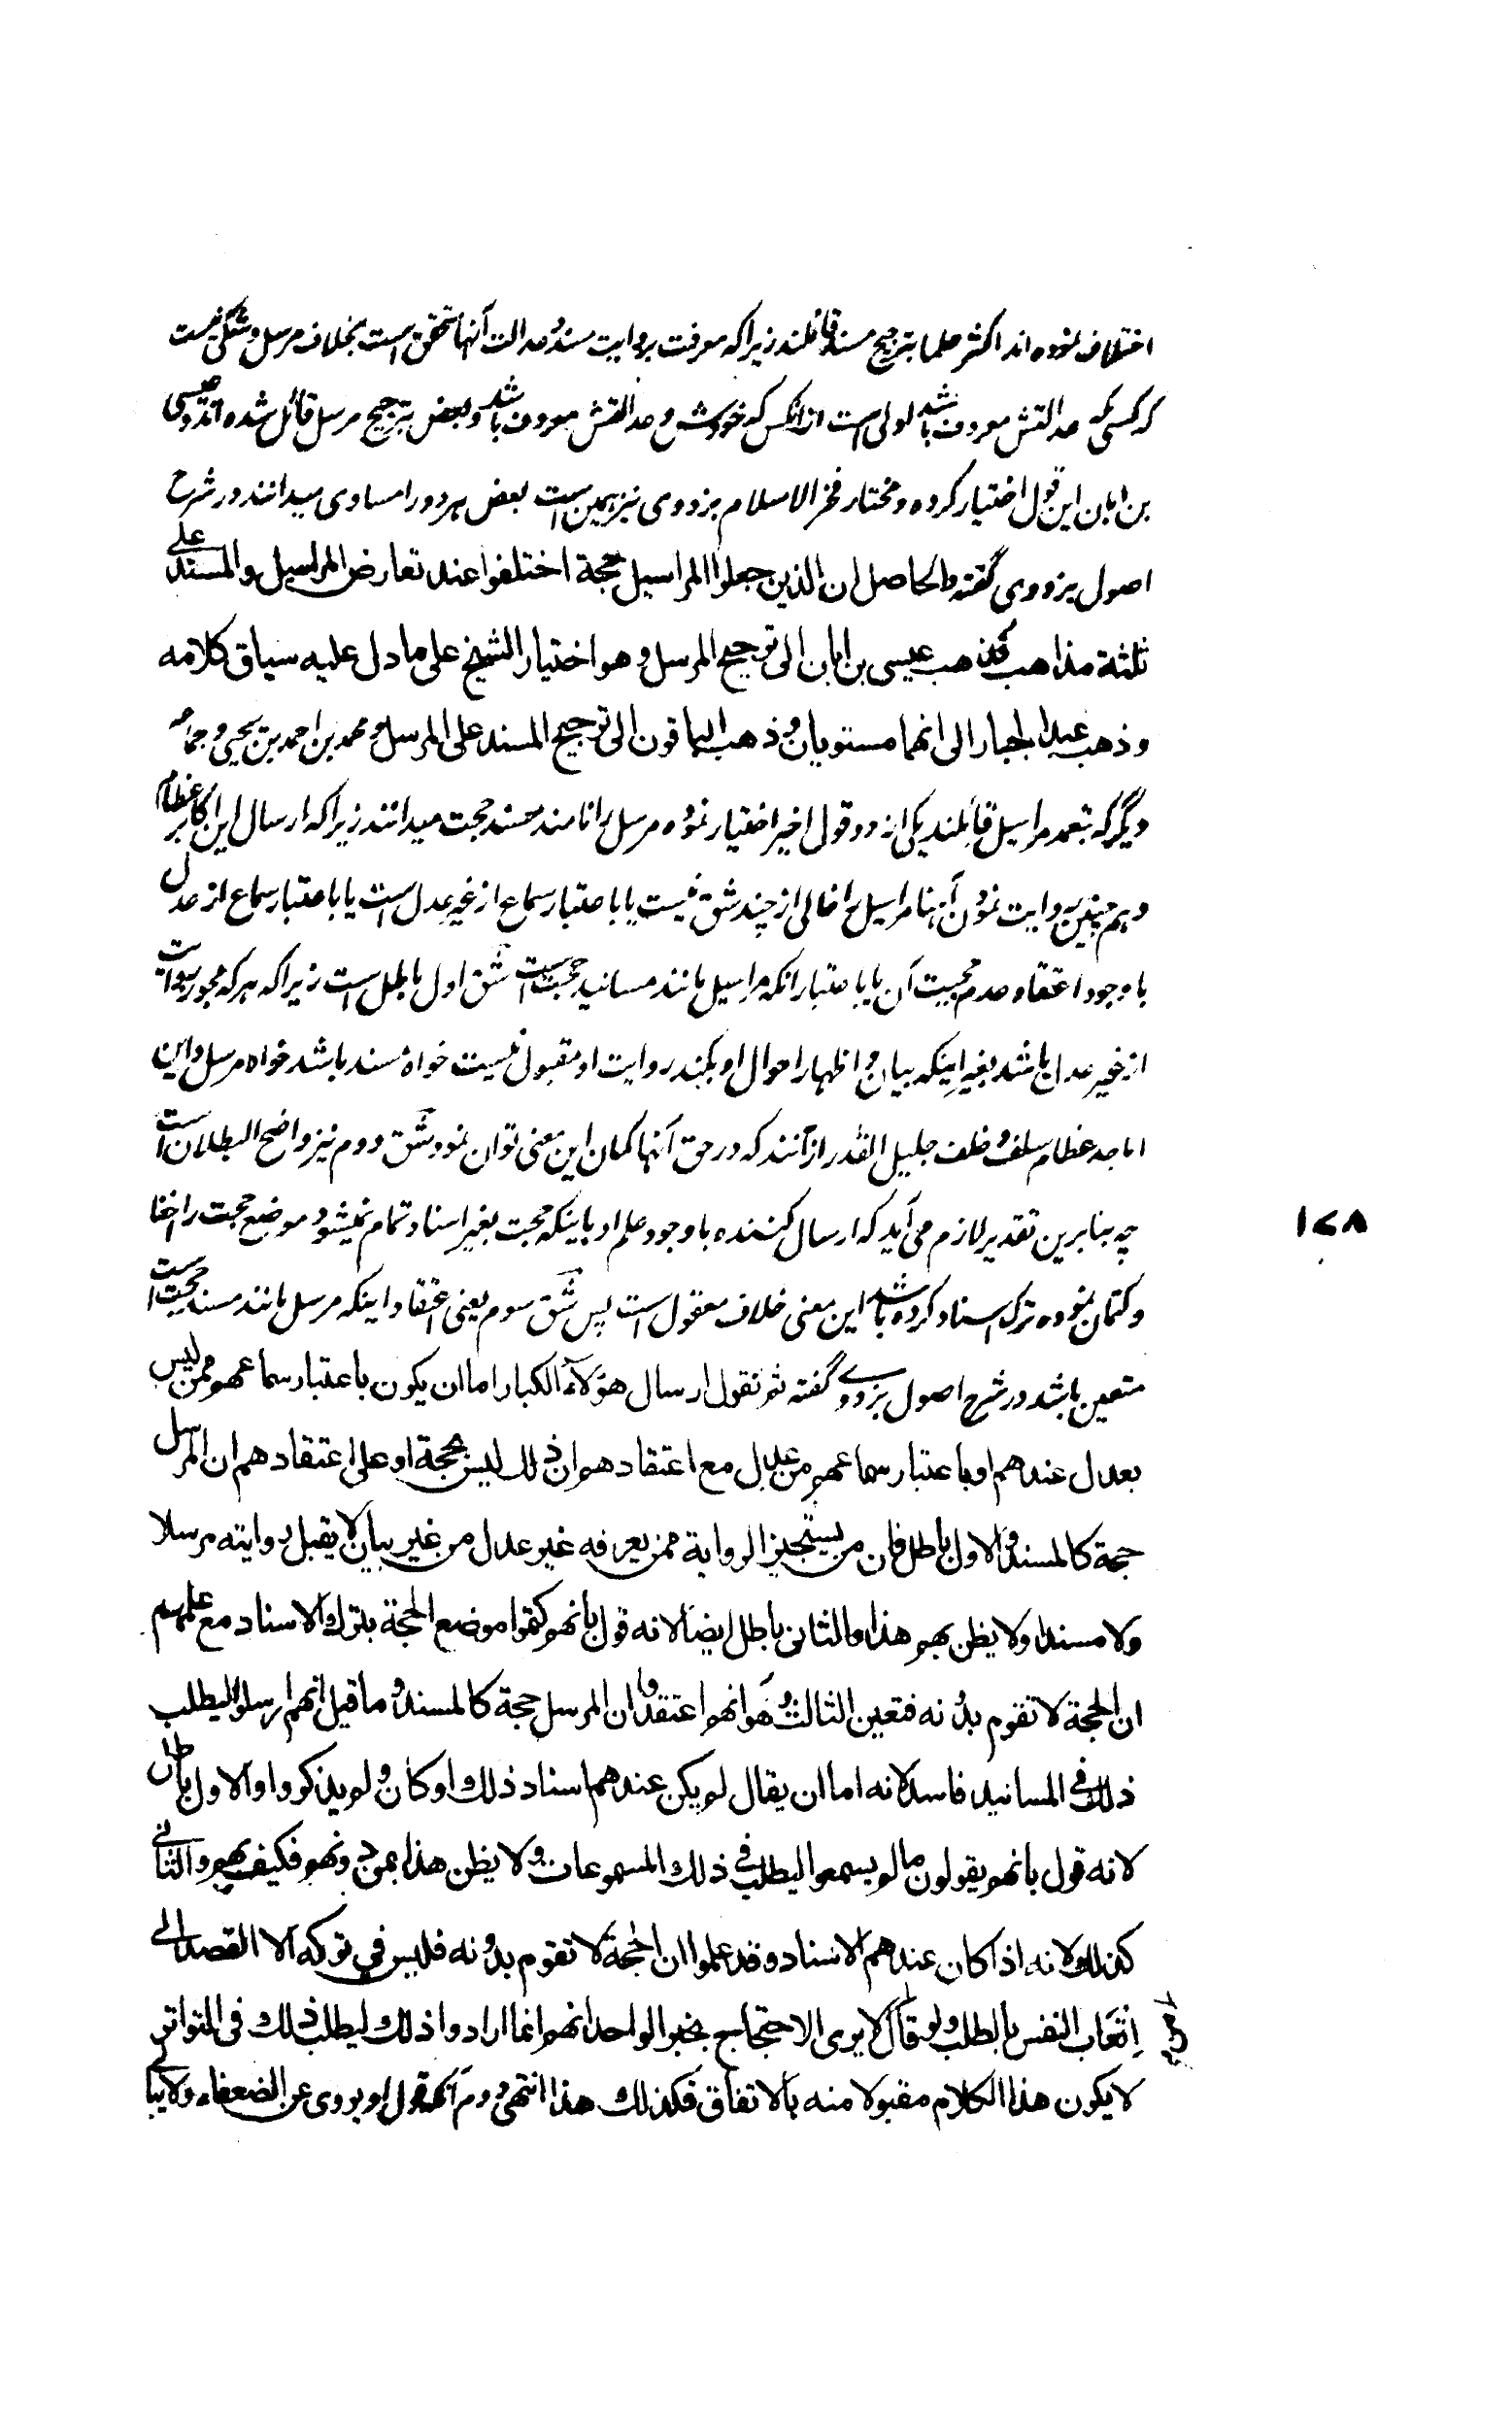 اختلاف نموده اند اکثر علما بترجیح مسند قائلند زیرا که معرفت بروایت مسند و عدالت آنها متحقق است بخلاف مرسل و شکی نیست
که کسی که عدالتش معروف باشد اولی است از انکس که خودش و عدالتش معروف باشد و بعض بترجیح مرسل قائل شده اند و عیسی
بن ابان این قول اختیار کرده و مختار فخر الاسلام بزدوی نیز همین است بعض هر دو را مساوی میدانند در شرح
اصول بزدوی گفته والحاصل ان الذین جعلوا المراسیل حجة اختلفوا عند تعارض المراسیل والمسند علی
ثلثة مذاهب فذهب عیسی بن ابان الی ترجیح المرسل و هو اختیار الشیخ علی ما دل علیه سیاق کلامه
و ذهب عبد الجبار الی انهما مستویان و ذهب الباقون الی ترجیح المسند علی المرسل و محمد بن احمد بن یحیی و جماعه
دیگر که بتعمد مراسیل قائلند یکی از دو قول اخیر اختیار نموده مرسل را مانند مسند حجت میدانند زیرا که ارسال این اکابر عظام
و همچنین روایت نمودن آنها مراسیل را خالی از چند شق نیست یا باعتبار سماع از غیر عدل است یا باعتبار سماع از عدل
با وجود اعتقاد عدم حجیت آن یا باعتبار انکه مراسیل مانند مسانید حجت است شق اول باطل است زیرا که هر که مجوز روایت
از غیر عدل باشد بغیر اینکه بیان و اظهار احوال او بکند روایت او مقبول نیست خواه مسند باشد خواه مرسل و این
اماجد عظام سلف و خلف جلیل القدر از آنند که در حق آنها گمان این معنی توان نمود و شق دوم نیز واضح البطلان است
چه بنابرین تقدیر لازم می آید که ارسال کننده با وجود علم او باینکه حجت بغیر اسناد تمام نمیشود موضع حجت را اخفا
و کتمان نموده ترک اسناد کرده باشد این معنی خلاف معقول است پس شق سوم یعنی اعتقاد اینکه مرسل مانند مسند حجت است
متعین باشد در شرح اصول بزدوی گفته ثم نقول ارسال هؤلاء الکبار اما ان یکون باعتبار سماعهم ممن لیس
بعدل عندهم او باعتبار سماعهم من عدل مع اعتقادهم ان ذلک لیس بحجة او علی اعتقادهم ان المرسل
حجة کالمسند و الاول باطل فان من یستجیز الروایة ممن یعرفه غیر عدل من غیر بیان لا یقبل روایته مرسلا
ولا مسندا ولا یظن بهم هذا والثانی باطل ایضا لانه قول بانهم کتموا موضع الحجة بترک الاسناد مع علمهم
ان الحجة لا تقوم بدونه فتعین الثالث و هو انهم اعتقدوا ان المرسل حجة کالمسند و ما قیل انهم ارسلوا لیطلب
ذلک فی المسانید فاسد لانه اما ان یقال لم یکن عندهم اسناد ذلک او کان و لم یذکروا و الاول باطل
لانه قول بانهم یقولون ما لم یسمعوا لیطلب فی ذلک المسموعات و لا یظن هذا بمن دونهم فکیف بهم و الثانی
کذلک لانه اذا کان عندهم الاسناد و قد علموا ان الحجة لا تقوم بدونه فلیس فی ترکه الا القصد الی
اتعاب النفس بالطلب و لو قال من لا یری الاحتجاج بخبر الواحد انهم انما ارادوا ذلک لیطلب ذلک فی المتواتر
لا یکون هذا الکلام مقبولا منه بالاتفاق فکذلک هذا انتهی دوم آنکه قول او یروی عن الضعفاء و لا یبالی
۱۷۸